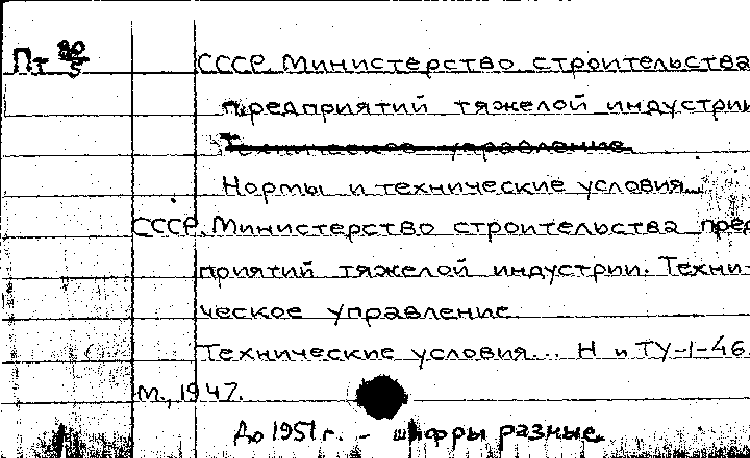 Пт 80/5 СССР. Министерство строительства
предприятий тяжелой индустрии
Техническое управление
Нормы и технические условия...
СССР. Министерство строительства пред-
приятий тяжелой индустрии. Техни-
ческое управление
Технические условия... Н и ТУ-1-46
М., 1947.
До 1951 г. - шифры разные.